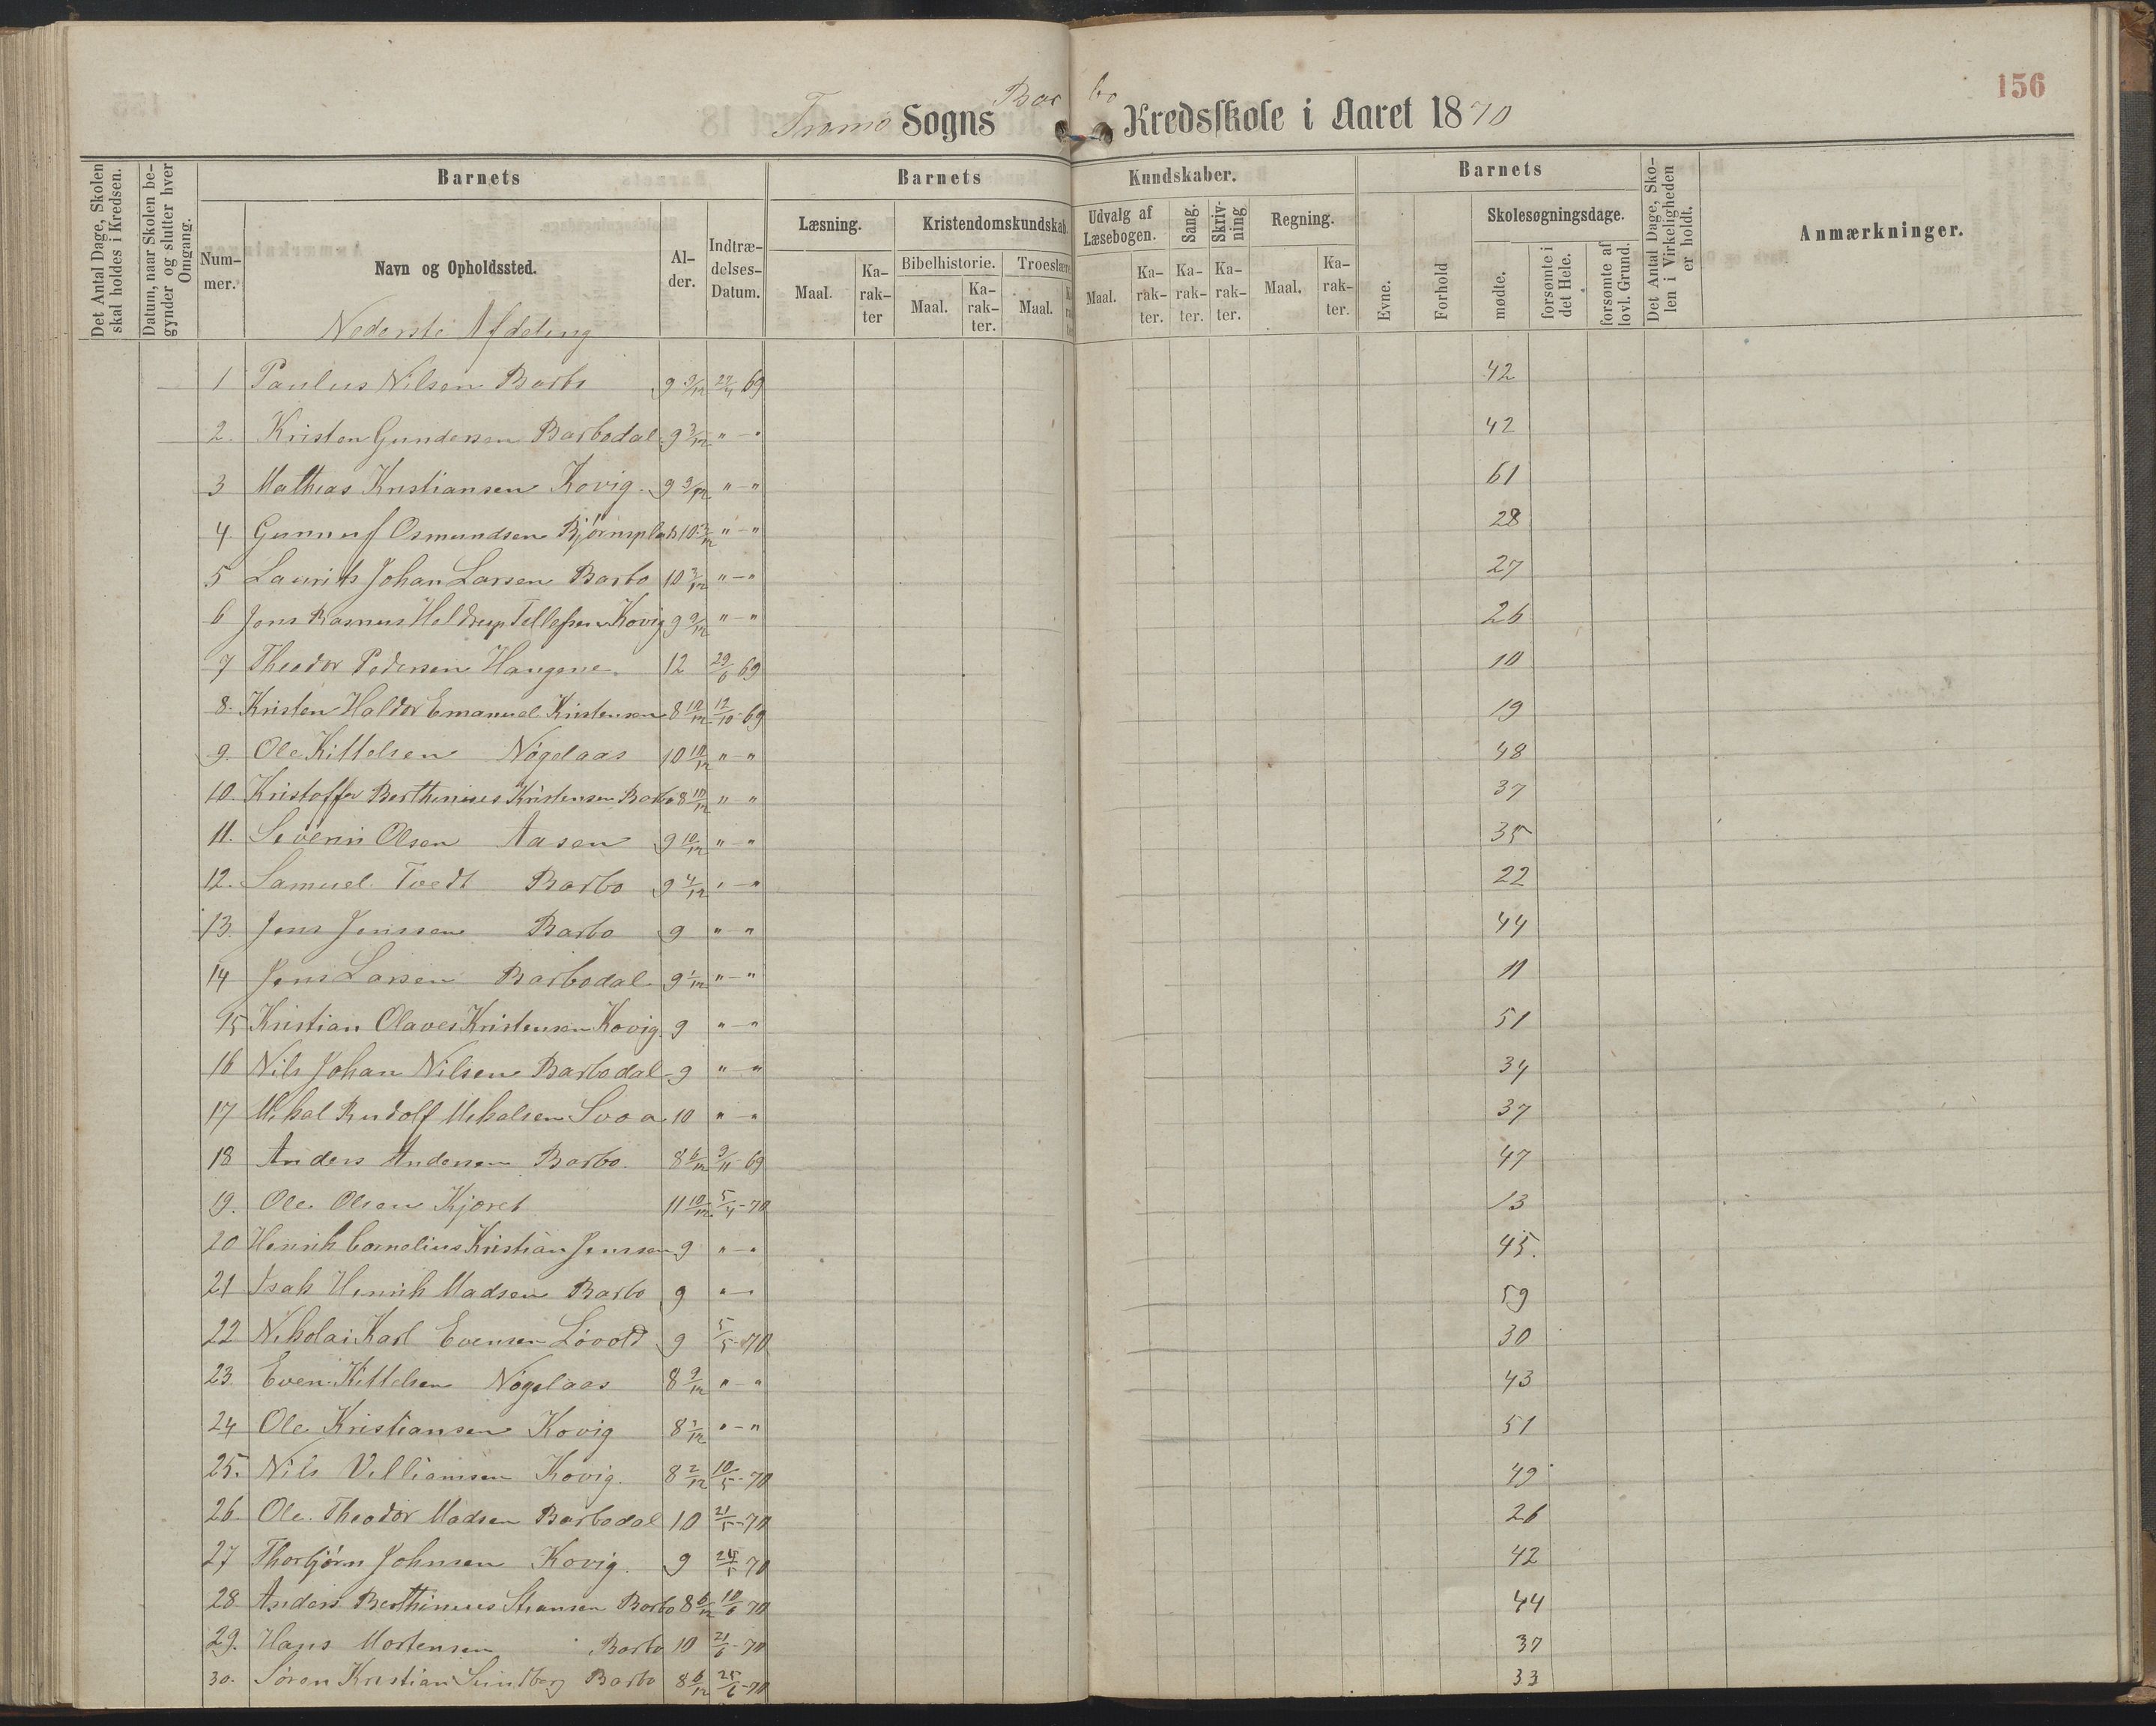 156
Tromø Sogns Barbo Kredsskole i Aaret 1870
Det Antal Dage, Skolen skal holdes i Kredsen.
Datum, naar Skolen begynder og slutter hver Omgang.
Barnets
Barnets Kundskaber.
Barnets
Det Antal Dage, Skolen i Virkeligheden er holdt.
Anmærkninger.
Nummer.
Navn og Opholdssted.
Alder.
Indtrædelses-Datum.
Læsning.
Kristendomskundskab.
Udvalg af Læsebogen.
Sang.
Skrivning
Regning.
Evne.
Forhold
Skolesøgningsdage.
Bibelhistorie.
Troeslære
mødte.
forsømte i det Hele.
forsømte af lovl. Grund.
Maal. Karakter Maal. Karakter. Maal. Maal. Karakter. Karakter. Karakter. Maal. Karakter.
Nederste Afdeling
1 Paulus Nilsen Barbo 9 9/12 69 42
2. Kristen Gundersen Barbodal 9 3/12 " - " 42
3 Mathias Kristiansen Kovig 9 9/12 " - " 61
4. Gunnuf Osmundsen Bjørnsplads 10 3/12 " - " 28
5 Laurits Johan Larsen Barbo 10 3/12 " - " 27
6 Jens Rasmus Tellefsen Kovig 9 9/12 " - " 26
7 Theodor Pedersen Haugene 12 29/6 69 10
8. Kristen Haldor Emanuel Kristensen 8 10/12 12/10 - 69 19
9. Ole Kittelsen Nøgelaas 10 10/12 " - " 48
10. Kristoffer Berthinius Kristensen Barbo 8 10/12 " - " 37
11. Severin Olsen Aasen 9 10/12 " - " 35
12. Samuel Tvedt Barbo 9 4/12 " - " 22
13. Jens Jenssen Barbo 9 " - " 44
14 Jens Larsen Barbodal 9 1/12 " - " 11
15 Kristian Olaves Kristensen Kovig 9 " - " 51
16 Nils Johan Nilsen Barbodal 9 " - " 34
17 Mikal Rudolf Mikalsen Svoa 10 " - " 37
18 Anders Andersen Barbo. 8 6/12 9/11 - 69 47
19. Ole Olsen 11 10/12 5/4 - 70 13
20 Henrik Cornelius Kristian Jenssen 9 " - " 45.
21 Isak Henrik Madsen Barbo 9 " - " 59
22 Nikolai Karl Evensen Løvold 9 5/5 - 70 30
23. Even Kittelsen Nøgelaas 8 9/12 " - " 43
24 Ole Kristiansen Kovig 8 " - " 51
25. Nils Villiamsen Kovig. 8 2/12 10/5 - 70 49
26. Ole Theodor Madsen Barbodal 10 21/5 - 70 26
27 Thorbjørn Johnsen Kovig. 9 70 42
28 Anders Berthinius Barbo 8 6/12 10/6 70 44
29. Hans Mortensen Barbo 10 21/6 - 70 37
30. Søren Kristian Sundberg Barbo 8 6/12 25/6 - 70 33